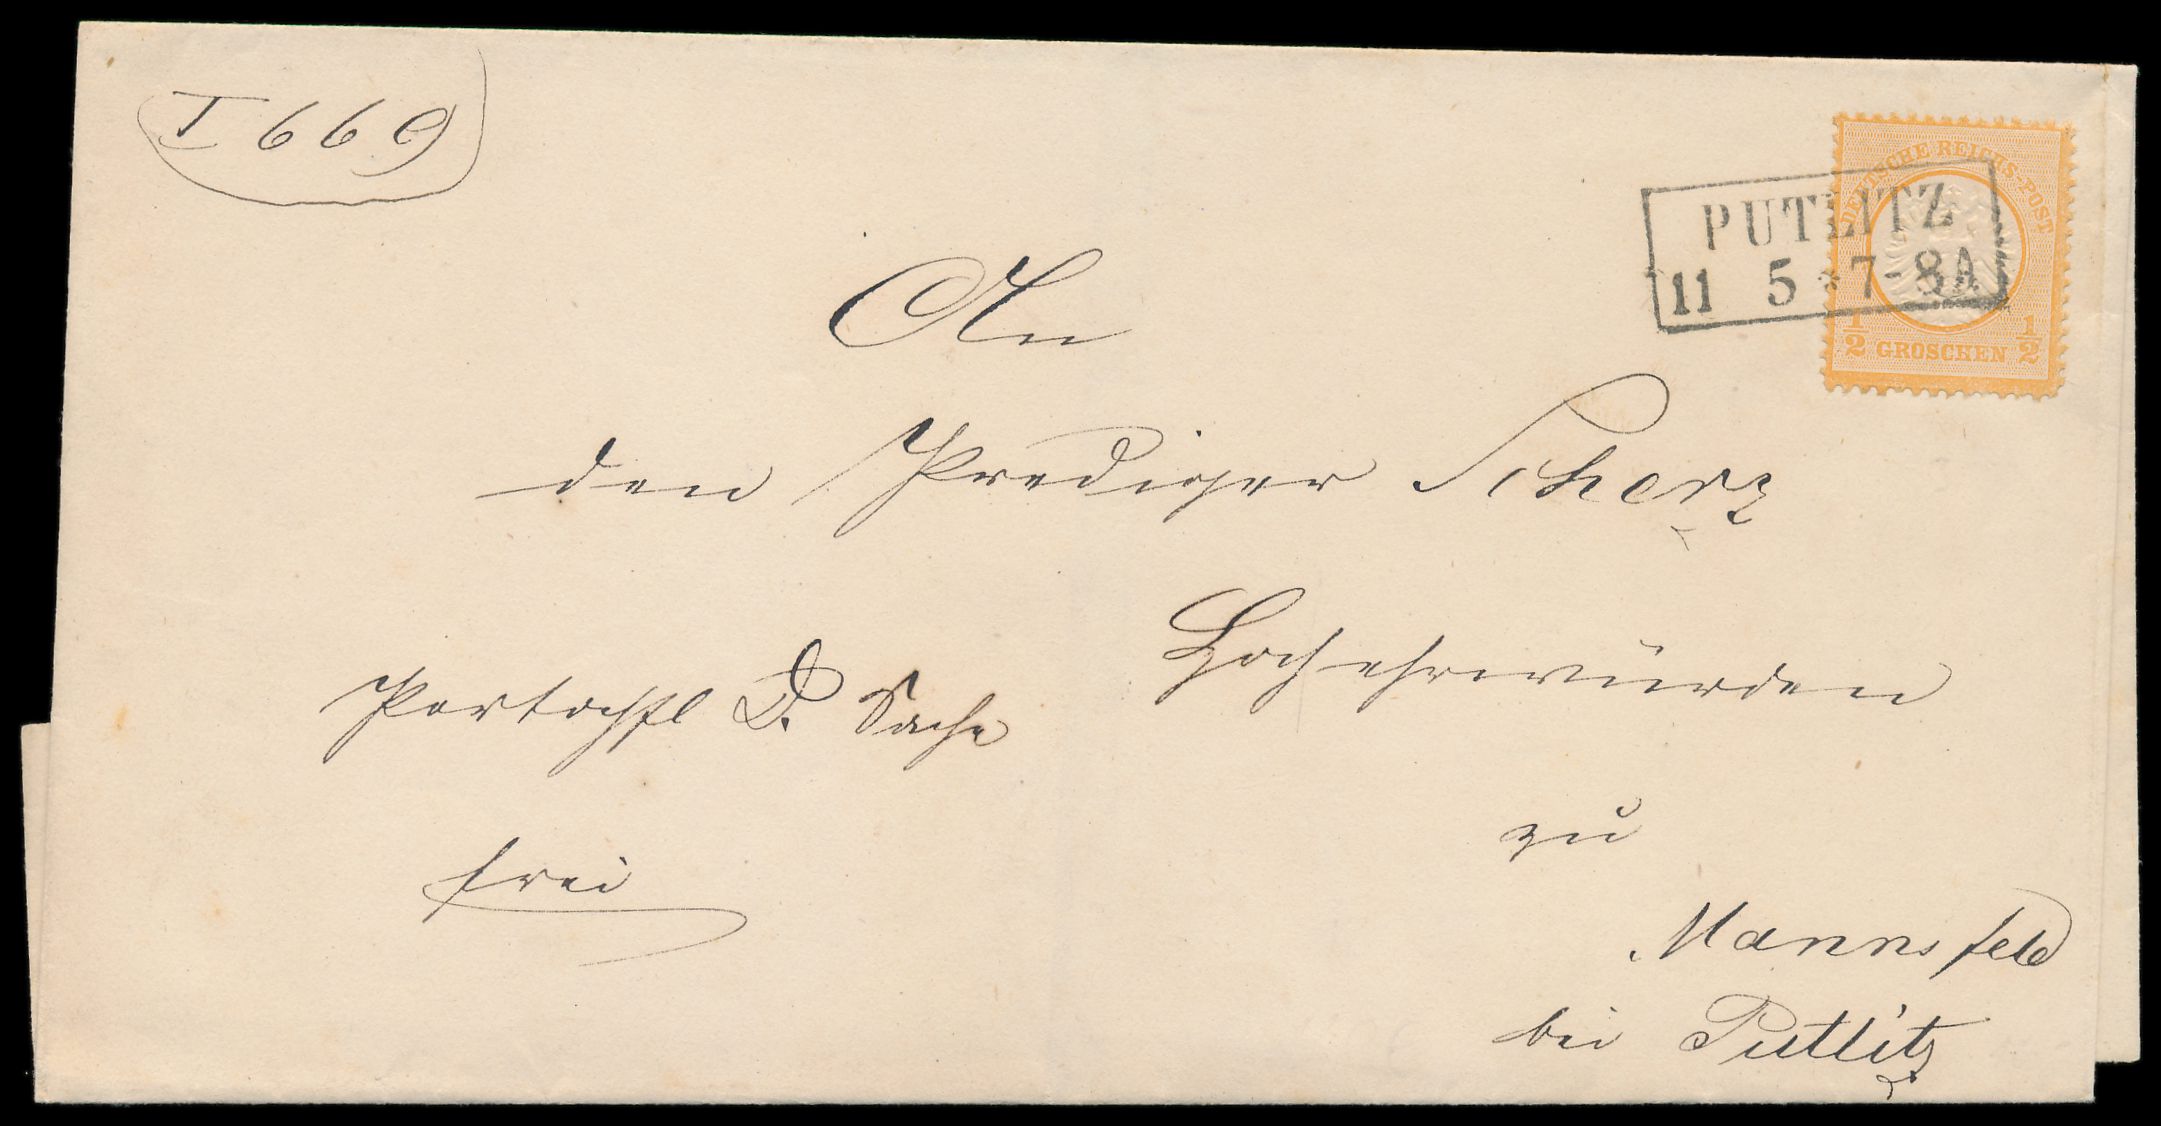 I 669
DEUTSCHE REICHS-POST
PUTLITZ
11 5 * 7-8A
1/2 GROSCHEN 1/2
An
den Prediger Scherz
Hochehrwürden
Portopfl D. Sache
frei
zu
Mannsfeld
bei Putlitz